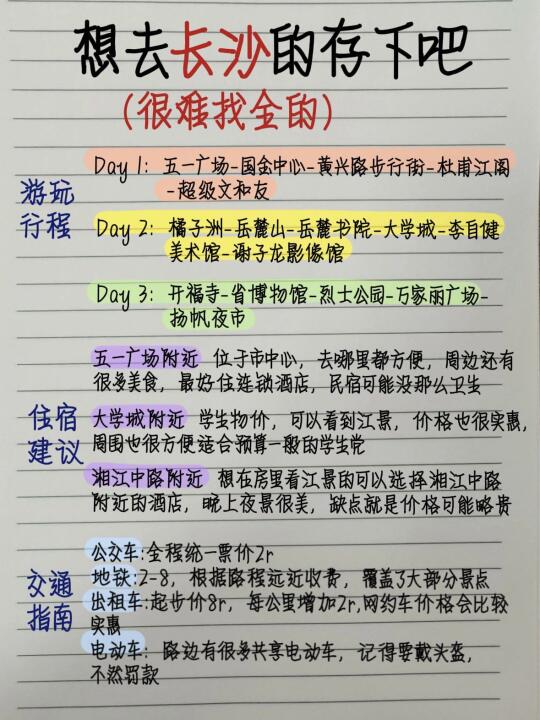 想去长沙的存下吧
（很难找全的）
游玩
行程
Day 1：五一广场-国金中心-黄兴路步行街-杜甫江阁
-超级文和友
Day 2：橘子洲-岳麓山-岳麓书院-大学城-李自健
美术馆-谢子龙影像馆
Day 3：开福寺-省博物馆-烈士公园-万家丽广场-
扬帆夜市
住宿
建议
五一广场附近 位于市中心，去哪里都方便，周边还有
很多美食，最好住连锁酒店，民宿可能没那么卫生
大学城附近 学生物价，可以看到江景，价格也很实惠，
周围也很方便适合预算一般的学生党
湘江中路附近 想在房里看江景的可以选择湘江中路
附近的酒店，晚上夜景很美，缺点就是价格可能略贵
交通
指南
公交车:全程统一票价2r
地铁:2-8，根据路程远近收费，覆盖了大部分景点
出租车:起步价8r，每公里增加2r,网约车价格会比较
实惠
电动车：路边有很多共享电动车，记得要戴头盔，
不然罚款